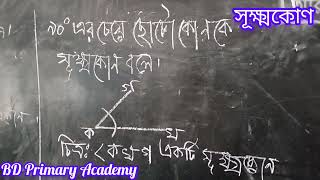 সূক্ষ্মকোণ
৯০° এর চেয়ে ছোটো কোনকে
সূক্ষ্মকোন বলে।
গ
ক
চিত্র: <ক একটি সূক্ষ্মকোন
BD Primary Academy